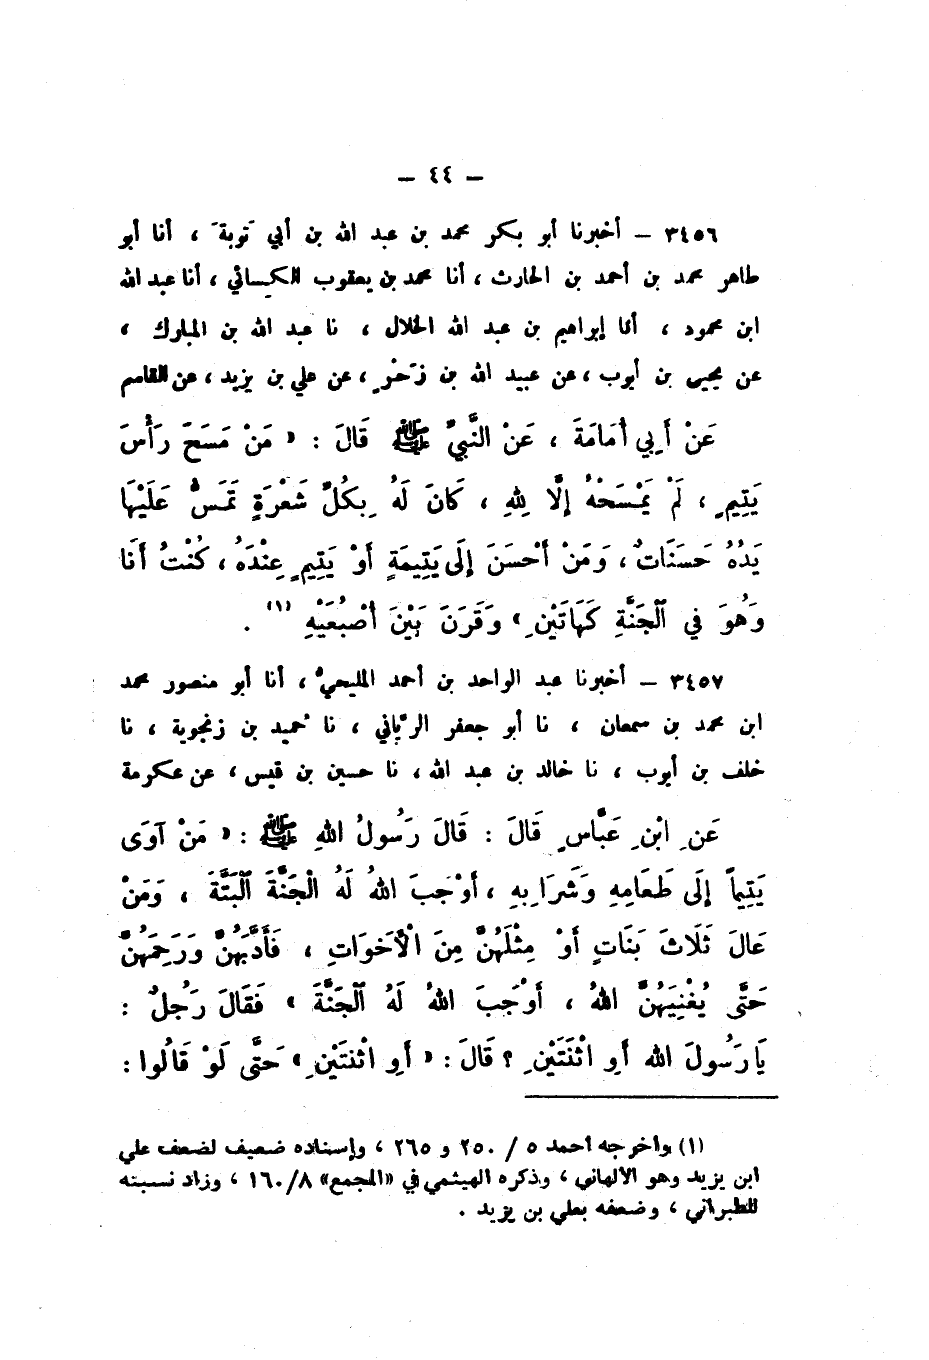 — ٤٤ —
٣٤٥٦ — أخبرنا أبو بكر محمد بن عبد الله بن أبي تَوبةَ ، أنا أبو
طاهر محمد بن أحمد بن الحارث ، أنا محمد بن يعقوب الكسائي ، أنا عبد الله
ابن محمود ، أنا إبراهيم بن عبد الله الخلال ، نا عبد الله بن المبارك ،
عن يحيى بن أيوب ، عن عبيد الله بن زَحْرٍ ، عن علي بن يزيد ، عن القاسم
عَنْ أَبِي أُمَامَةَ ، عَنْ النَّبِيِّ ﷺ قَالَ : « مَنْ مَسَحَ رَأْسَ
يَتِيمٍ ، لَمْ يَمْسَحْهُ إِلَّا لِلهِ ، كَانَ لَهُ بِكُلِّ شَعْرَةٍ تَمُسُّ عَلَيْهَا
يَدُهُ حَسَنَاتٌ ، وَمَنْ أَحْسَنَ إِلَى يَتِيمَةٍ أَوْ يَتِيمٍ عِنْدَهُ ، كُنْتُ أَنَا
وَهُوَ فِي الْجَنَّةِ كَهَاتَيْنِ » وَقَرَنَ بَيْنَ أُصْبُعَيْهِ (١) .
٣٤٥٧ — أخبرنا عبد الواحد بن أحمد المليحيُّ ، أنا أبو منصور محمد
ابن محمد بن سمعان ، نا أبو جعفر الرَّيَّاني ، نا حُميد بن زنجوية ، نا
خلف بن أيوب ، نا خالد بن عبد الله ، نا حسين بن قيس ، عن عكرمة
عَنِ ابْنِ عَبَّاسٍ قَالَ : قَالَ رَسُولُ اللهِ ﷺ : « مَنْ آوَى
يَتِيماً إِلَى طَعَامِهِ وَشَرَابِهِ ، أَوْجَبَ اللهُ لَهُ الْجَنَّةَ الْبَتَّةَ ، وَمَنْ
عَالَ ثَلَاثَ بَنَاتٍ أَوْ مِثْلَهُنَّ مِنَ الْأَخَوَاتِ ، فَأَدَّبَهُنَّ وَرَحِمَهُنَّ
حَتَّى يُغْنِيَهُنَّ اللهُ ، أَوْجَبَ اللهُ لَهُ الْجَنَّةَ » فَقَالَ رَجُلٌ :
يَا رَسُولَ الله أَوِ اثْنَتَيْنِ ؟ قَالَ : « أَوِ اثْنَتَيْنِ » حَتَّى لَوْ قَالُوا :
(١) وأخرجه أحمد ٥ / ٢٥٠ و ٢٦٥ ، وإسناده ضعيف لضعف علي
ابن يزيد وهو الألهاني ، وذكره الهيثمي في «المجمع» ١٦٠/٨ ، وزاد نسبته
للطبراني ، وضعفه بعلي بن يزيد .